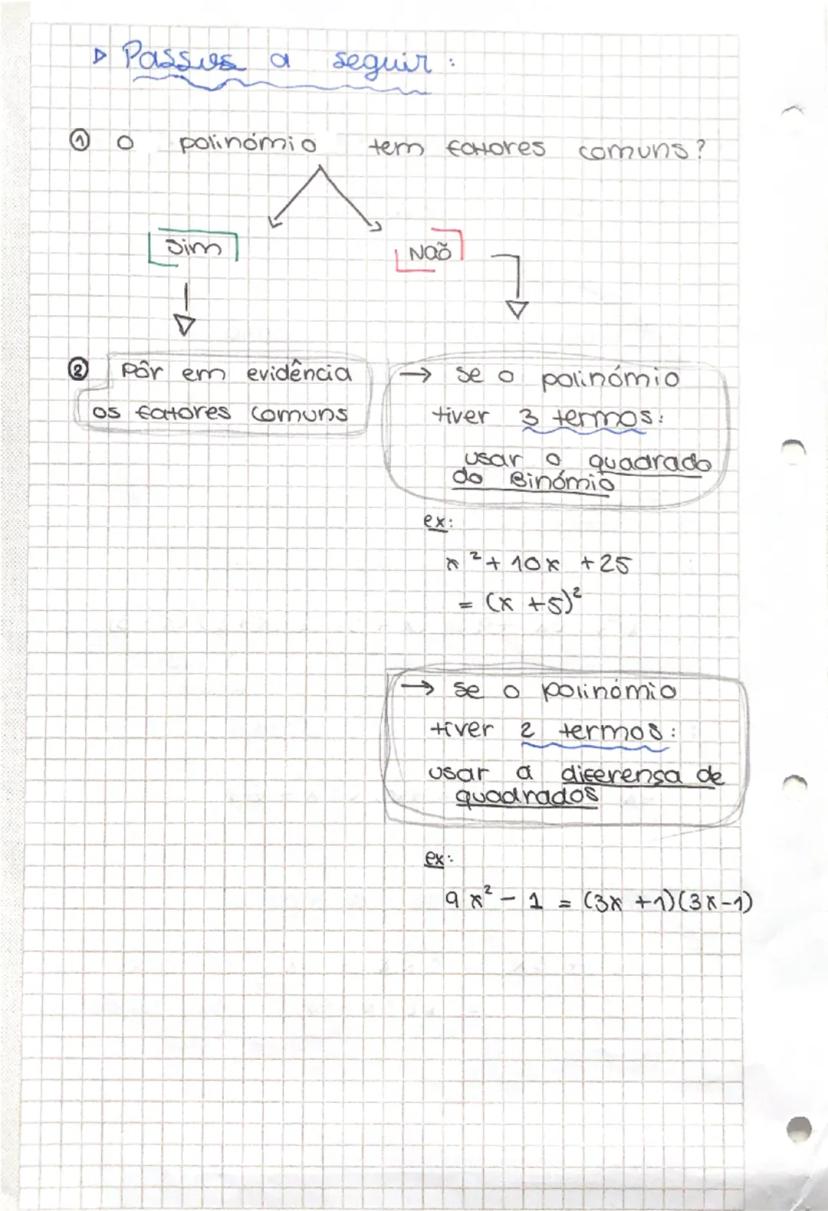 ▷ Passos a seguir:
① O polinómio tem fatores comuns?
Sim
Não
② Pôr em evidência
os fatores comuns
→ se o polinómio
tiver 3 termos:
usar o quadrado
do Binómio
ex:
x² + 10x + 25
= (x + 5)²
→ se o polinómio
tiver 2 termos:
usar a diferensa de
quadrados
ex:
9x² - 1 = (3x + 1)(3x - 1)